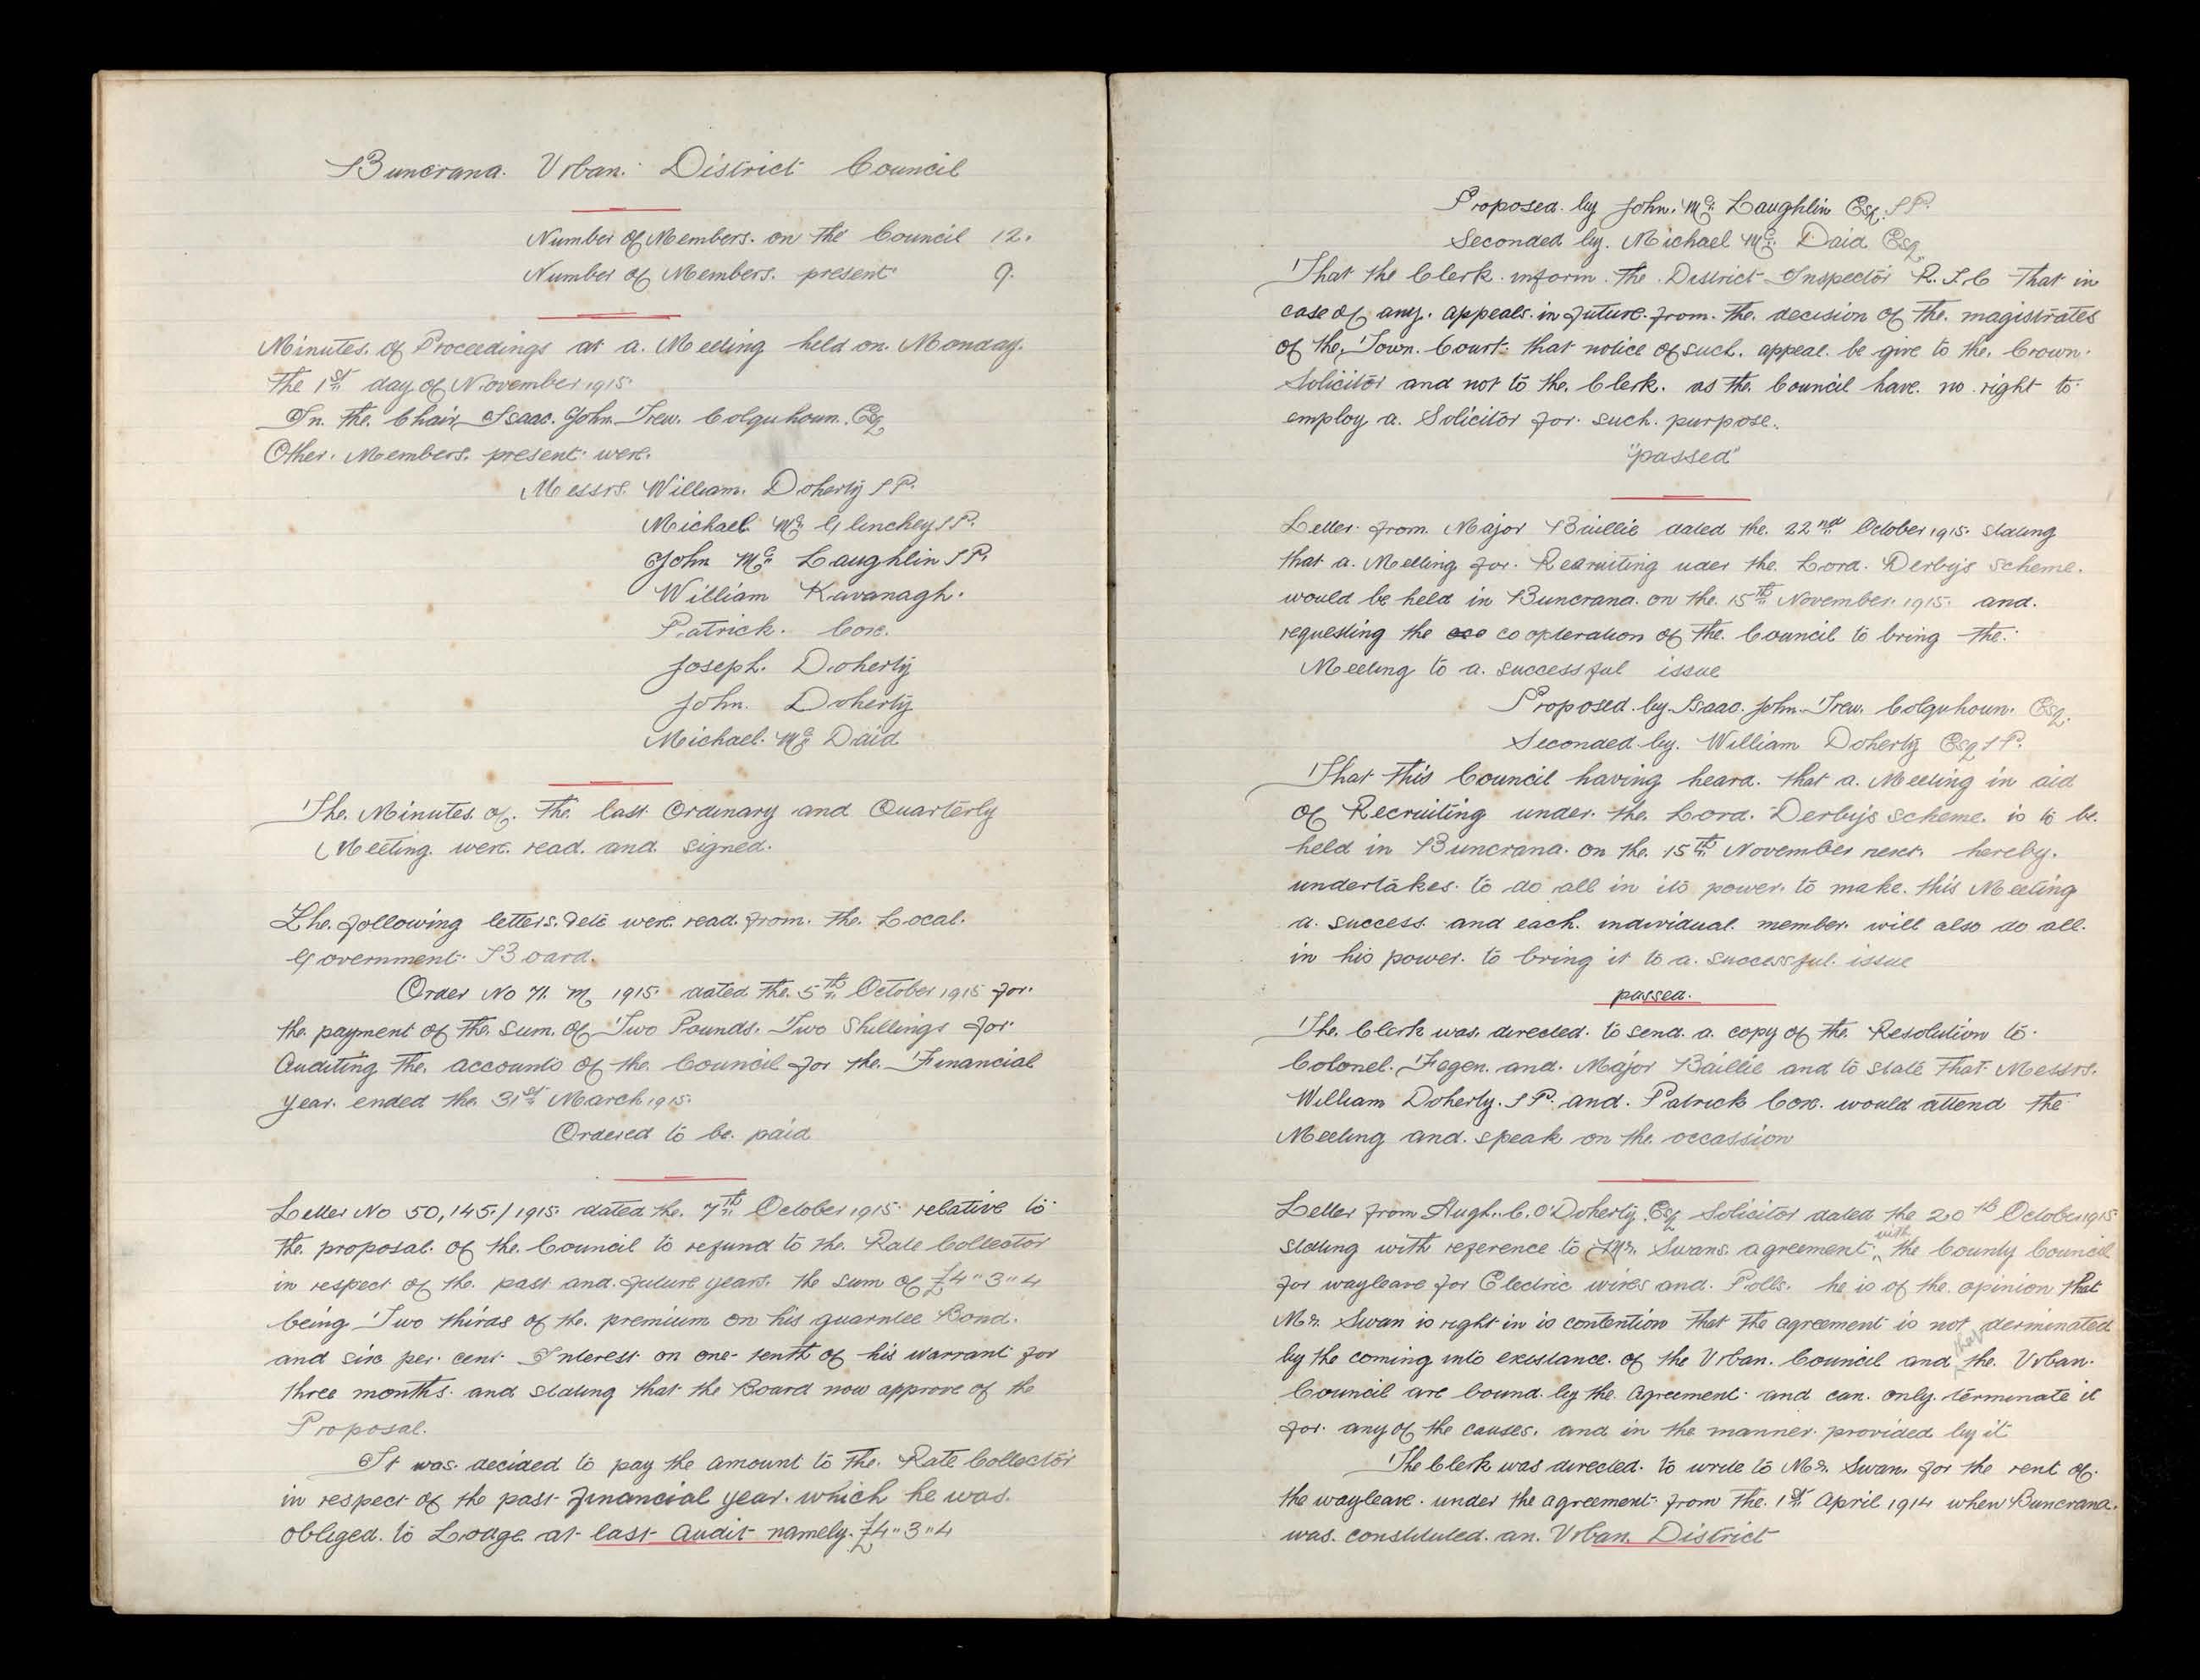 Buncrana. Urban. District Council
Number of Members. on the Council 12.
Number of Members. present 9.
Minutes. of Proceedings at a. Meeting held on. Monday.
the 1st day of November 1915.
In. the. Chair, Isaac. John. Trew. Colquhoun. Esq
Other. Members. present were.
Messrs. William. Doherty J P.
Michael. Mc Glinchey J P.
John Mc Laughlin J P.
William Kavanagh.
Patrick. Coxe.
Joseph. Doherty
John. Doherty
Michael. Mc Daid
The. Minutes of. the last Ordinary and Quarterly
Meeting. were. read. and signed.
The. following letters. &etc were. read. from. the. Local.
Government. Board.
Order No 71. M 1915. dated the. 5th October 1915 for.
the. payment of the. sum. of Two Pounds. Two Shillings for
Auditing the. accounts of the. Council for the. Financial
year. ended the. 31st March 1915.
Ordered to be. paid
Letter No 50,145./1915. dated the. 7th October 1915. relative to
the. proposal. of the. Council to refund to the. Rate Collector
in respect of the. past and. future years. the sum of £4"3"4
being Two thirds of the. premium on his guarntee Bond.
and six per. cent. Interest on one-tenth of his warrant for
three months. and stating that the Board now approve of the
Proposal.
It was. decided to pay the amount to the. Rate Collector
in respect of the past financial year. which he was.
obliged. to Lodge at last Audit namely. £4"3"4
Proposed. by John. Mc Laughlin Esq. J P.
Seconded by. Michael Mc Daid Esq
That the Clerk. inform. the. District Inspector R. I. C that in
case of any. appeals. in future. from. the. decision of the. magistrates
of the. Town. Court. that notice of such. appeal. be give to the. Crown.
Solicitor and not to the. Clerk. as the. Council have. no. right to
employ a. Solicitor for. such. purpose.
"passed"
Letter. from. Major Baillie dated the. 22nd October 1915. stating
that a. Meeting for. Recruiting uder the. Lord. Derbys scheme.
would be held in Buncrana. on the. 15th November. 1915. and.
requesting the coo co opteration of the. Council to bring the.
Meeting to a. successful issue
Proposed. by. Isaac. John. Trew. Colquhoun. Esq.
Seconded. by. William Doherty Esq J P.
That this Council having heard. that a. Meeting in aid
of Recruiting under. the. Lord. Derbys scheme. is to be.
held in Buncrana. on the. 15th November next. hereby.
undertakes. to do all in its power. to make. this Meeting
a. success. and each. individual. member. will also do all.
in his power. to bring it to a. successful. issue
passed.
The. Clerk was. directed. to send. a. copy of the. Resolution to
Colonel. Fegen. and. Major Baillie and to state that Messrs.
William Doherty. J P. and. Patrick Coxe. would attend the
Meeting and. speak on the. occassion
Letter from Hugh. C. O'Doherty. Esq Solicitor dated the 20th October 1915
stating with reference to Mr. Swans. agreement with the County Council
for wayleave for Electric wires and. Polls. he is of the. opinion that
Mr. Swan is right in is contention that the agreement is not derminated
by the coming into existance. of the Urban. Council and that the. Urban.
Council are bound. by the. Agreement. and can. only. terminate it
for. any of the causes. and in the manner. provided by it
The Clerk was directed. to write to Mr. Swan. for the rent of.
the wayleave. under the agreement from the. 1st April 1914 when Buncrana.
was. constituted. an. Urban. District